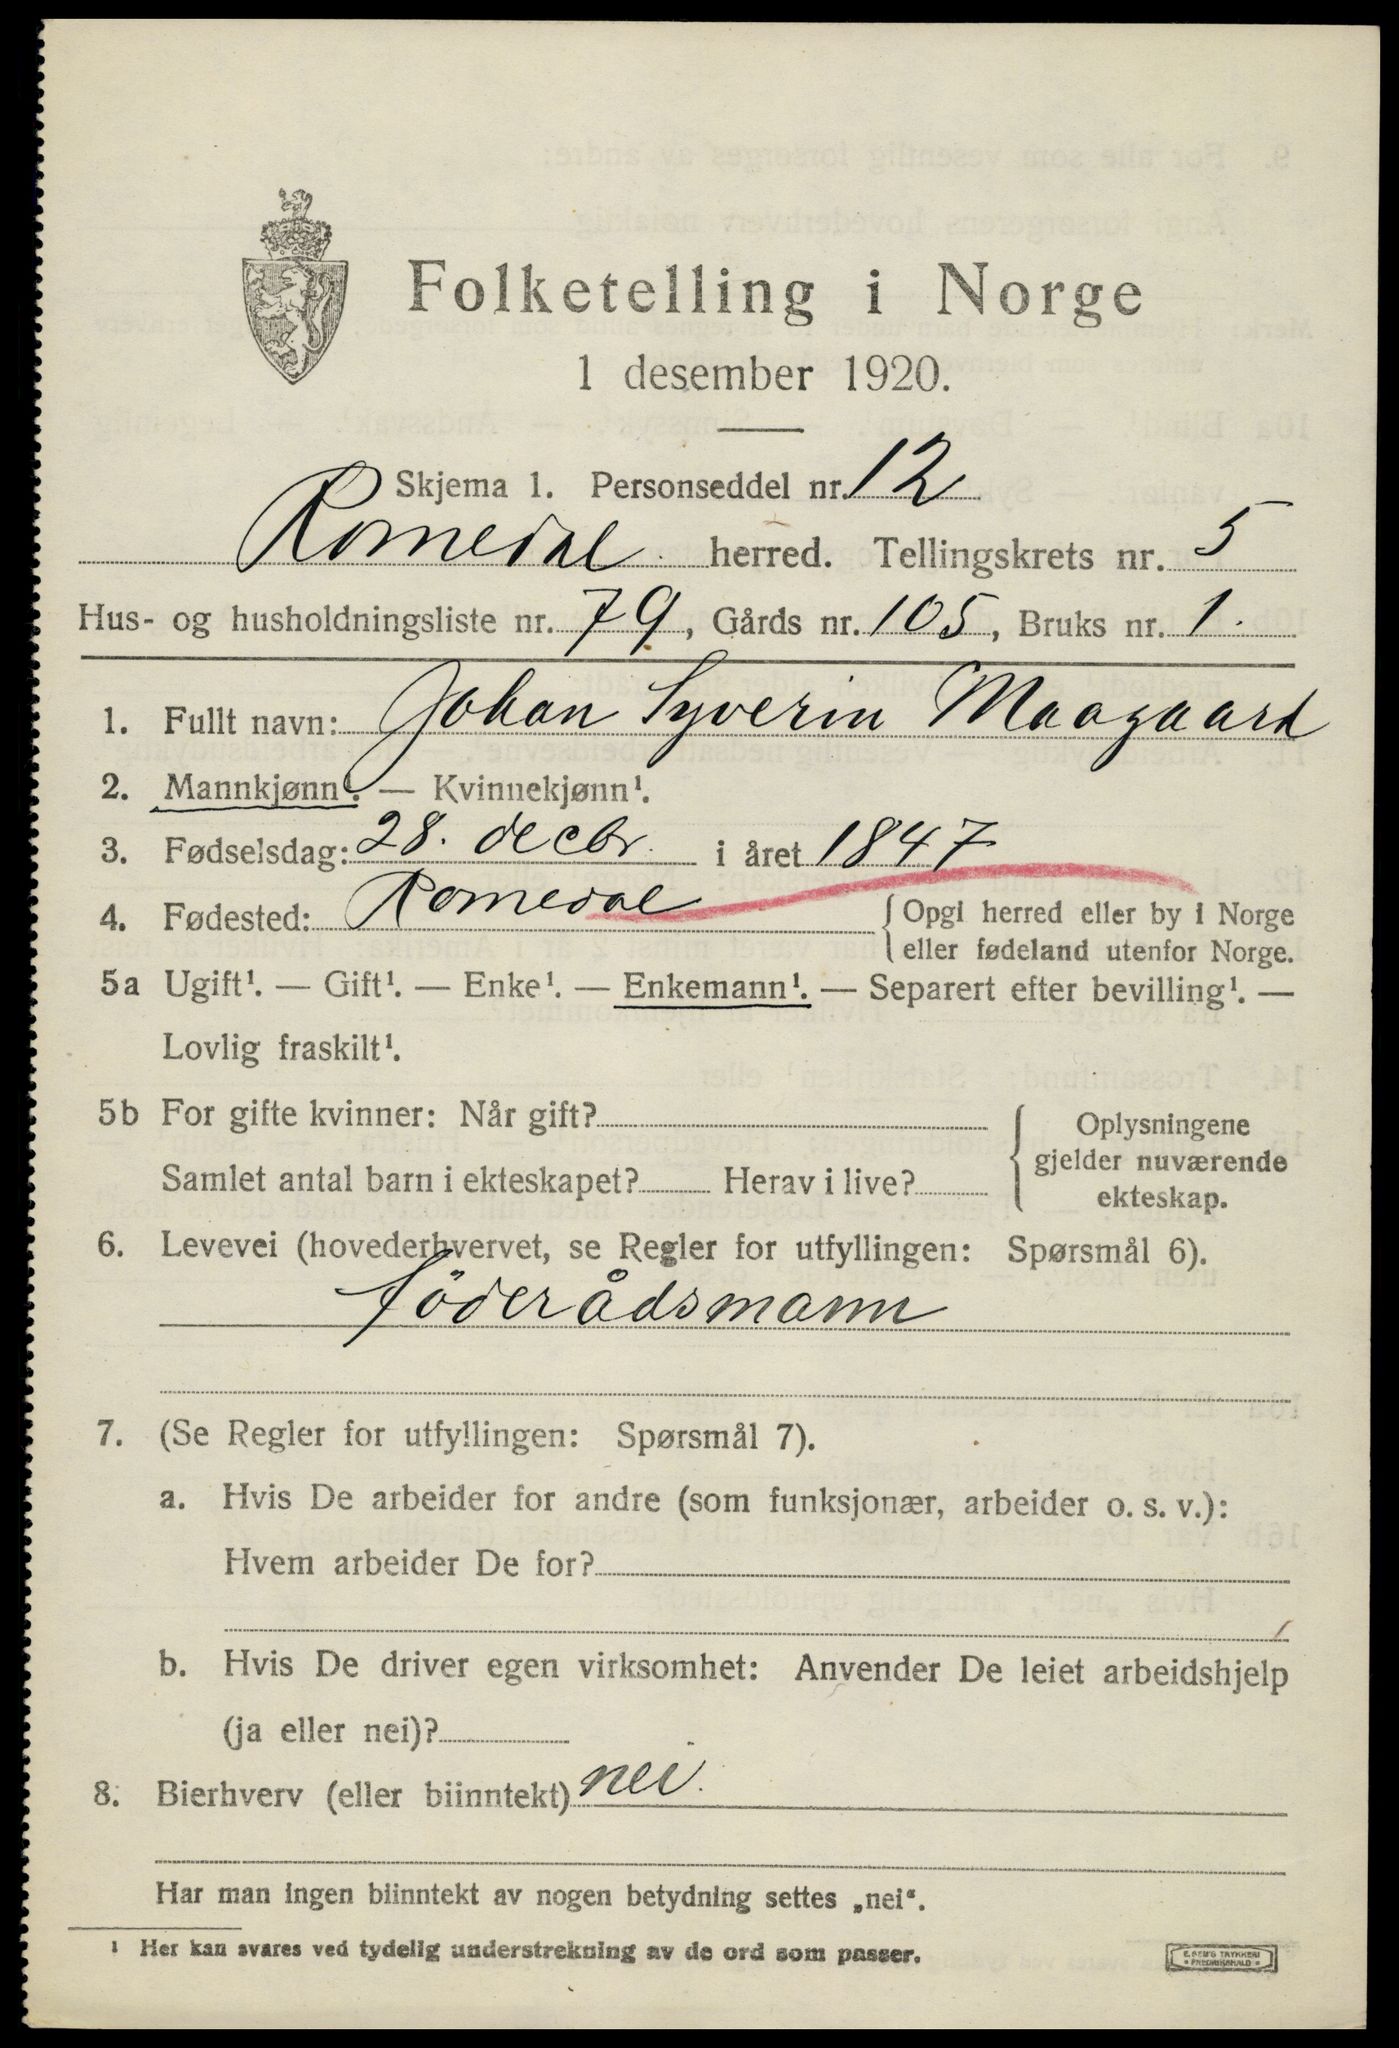 Folketelling i Norge
1 desember 1920.
Skjema 1. Personseddel nr. 12
Romedal herred. Tellingskrets nr. 5
Hus- og husholdningsliste nr. 79, Gårds nr. 105, Bruks nr. 1.
1. Fullt navn: Johan Syverin Maagaard
2. Mannkjønn¹. — Kvinnekjønn¹.
3. Fødselsdag: 28. decbr. i året 1847
4. Fødested: Romedal {Opgi herred eller by i Norge
eller fødeland utenfor Norge.
5a Ugift¹. — Gift¹. — Enke¹. — Enkemann¹. — Separert efter bevilling¹. —
Lovlig fraskilt¹.
5b For gifte kvinner: Når gift? {Oplysningene
gjelder nuværende
ekteskap.
Samlet antal barn i ekteskapet? Herav i live?
6. Levevei (hovederhvervet, se Regler for utfyllingen: Spørsmål 6).
föderådsmann
7. (Se Regler for utfyllingen: Spørsmål 7).
a. Hvis De arbeider for andre (som funksjonær, arbeider o. s. v.):
Hvem arbeider De for?
b. Hvis De driver egen virksomhet: Anvender De leiet arbeidshjelp
(ja eller nei)?
8. Bierhverv (eller biinntekt) nei.
Har man ingen biinntekt av nogen betydning settes „nei“.
¹ Her kan svares ved tydelig understrekning av de ord som passer.
E. SEM'S TRYKKERI
FREDRIKSHALD